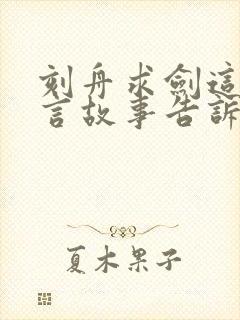 刻舟求劍這
言故事告訴
夏木果子